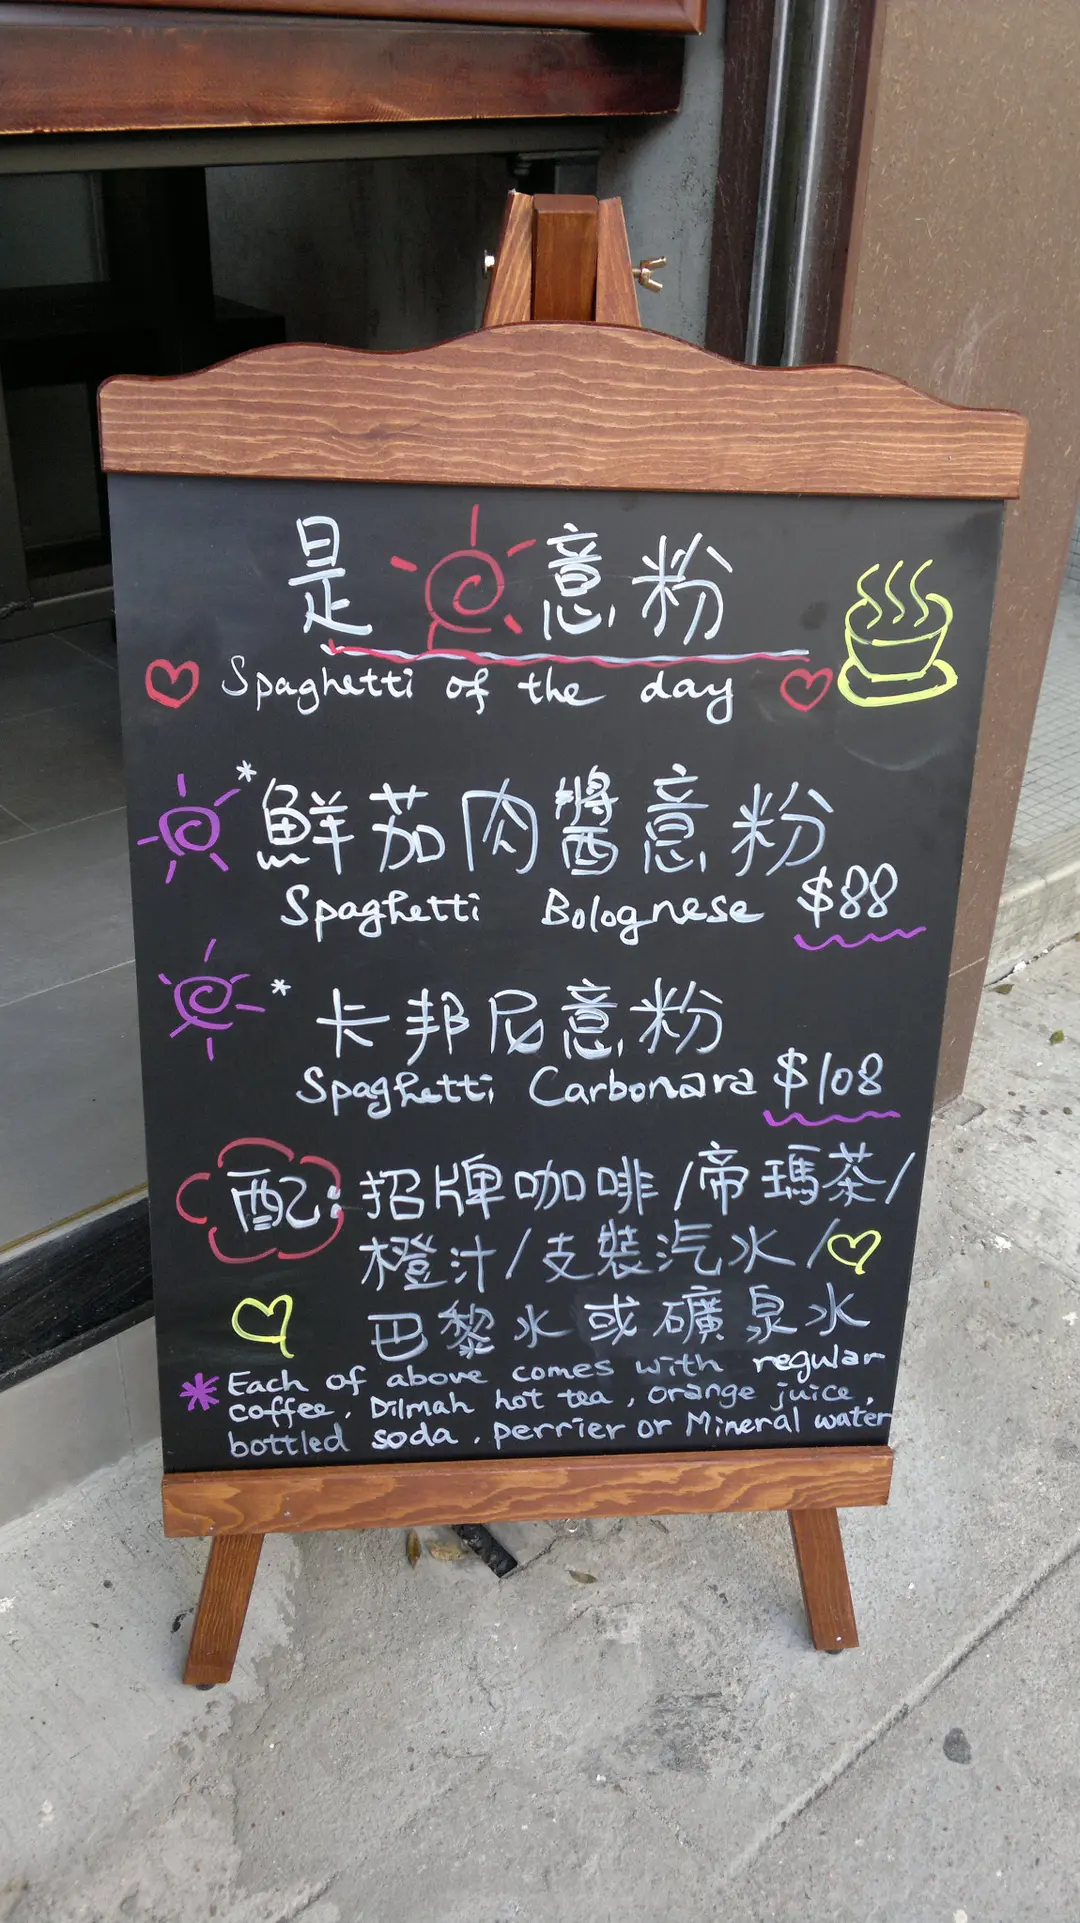 是 意粉
Spaghetti of the day
*鮮茄肉醬意粉
Spaghetti Bolognese $88
*卡邦尼意粉
Spaghetti Carbonara $108
配:招牌咖啡/帝瑪茶/
橙汁/支裝汽水/
巴黎水或礦泉水
*Each of above comes with regular
coffee, Dilmah hot tea, orange juice,
bottled soda, perrier or Mineral water